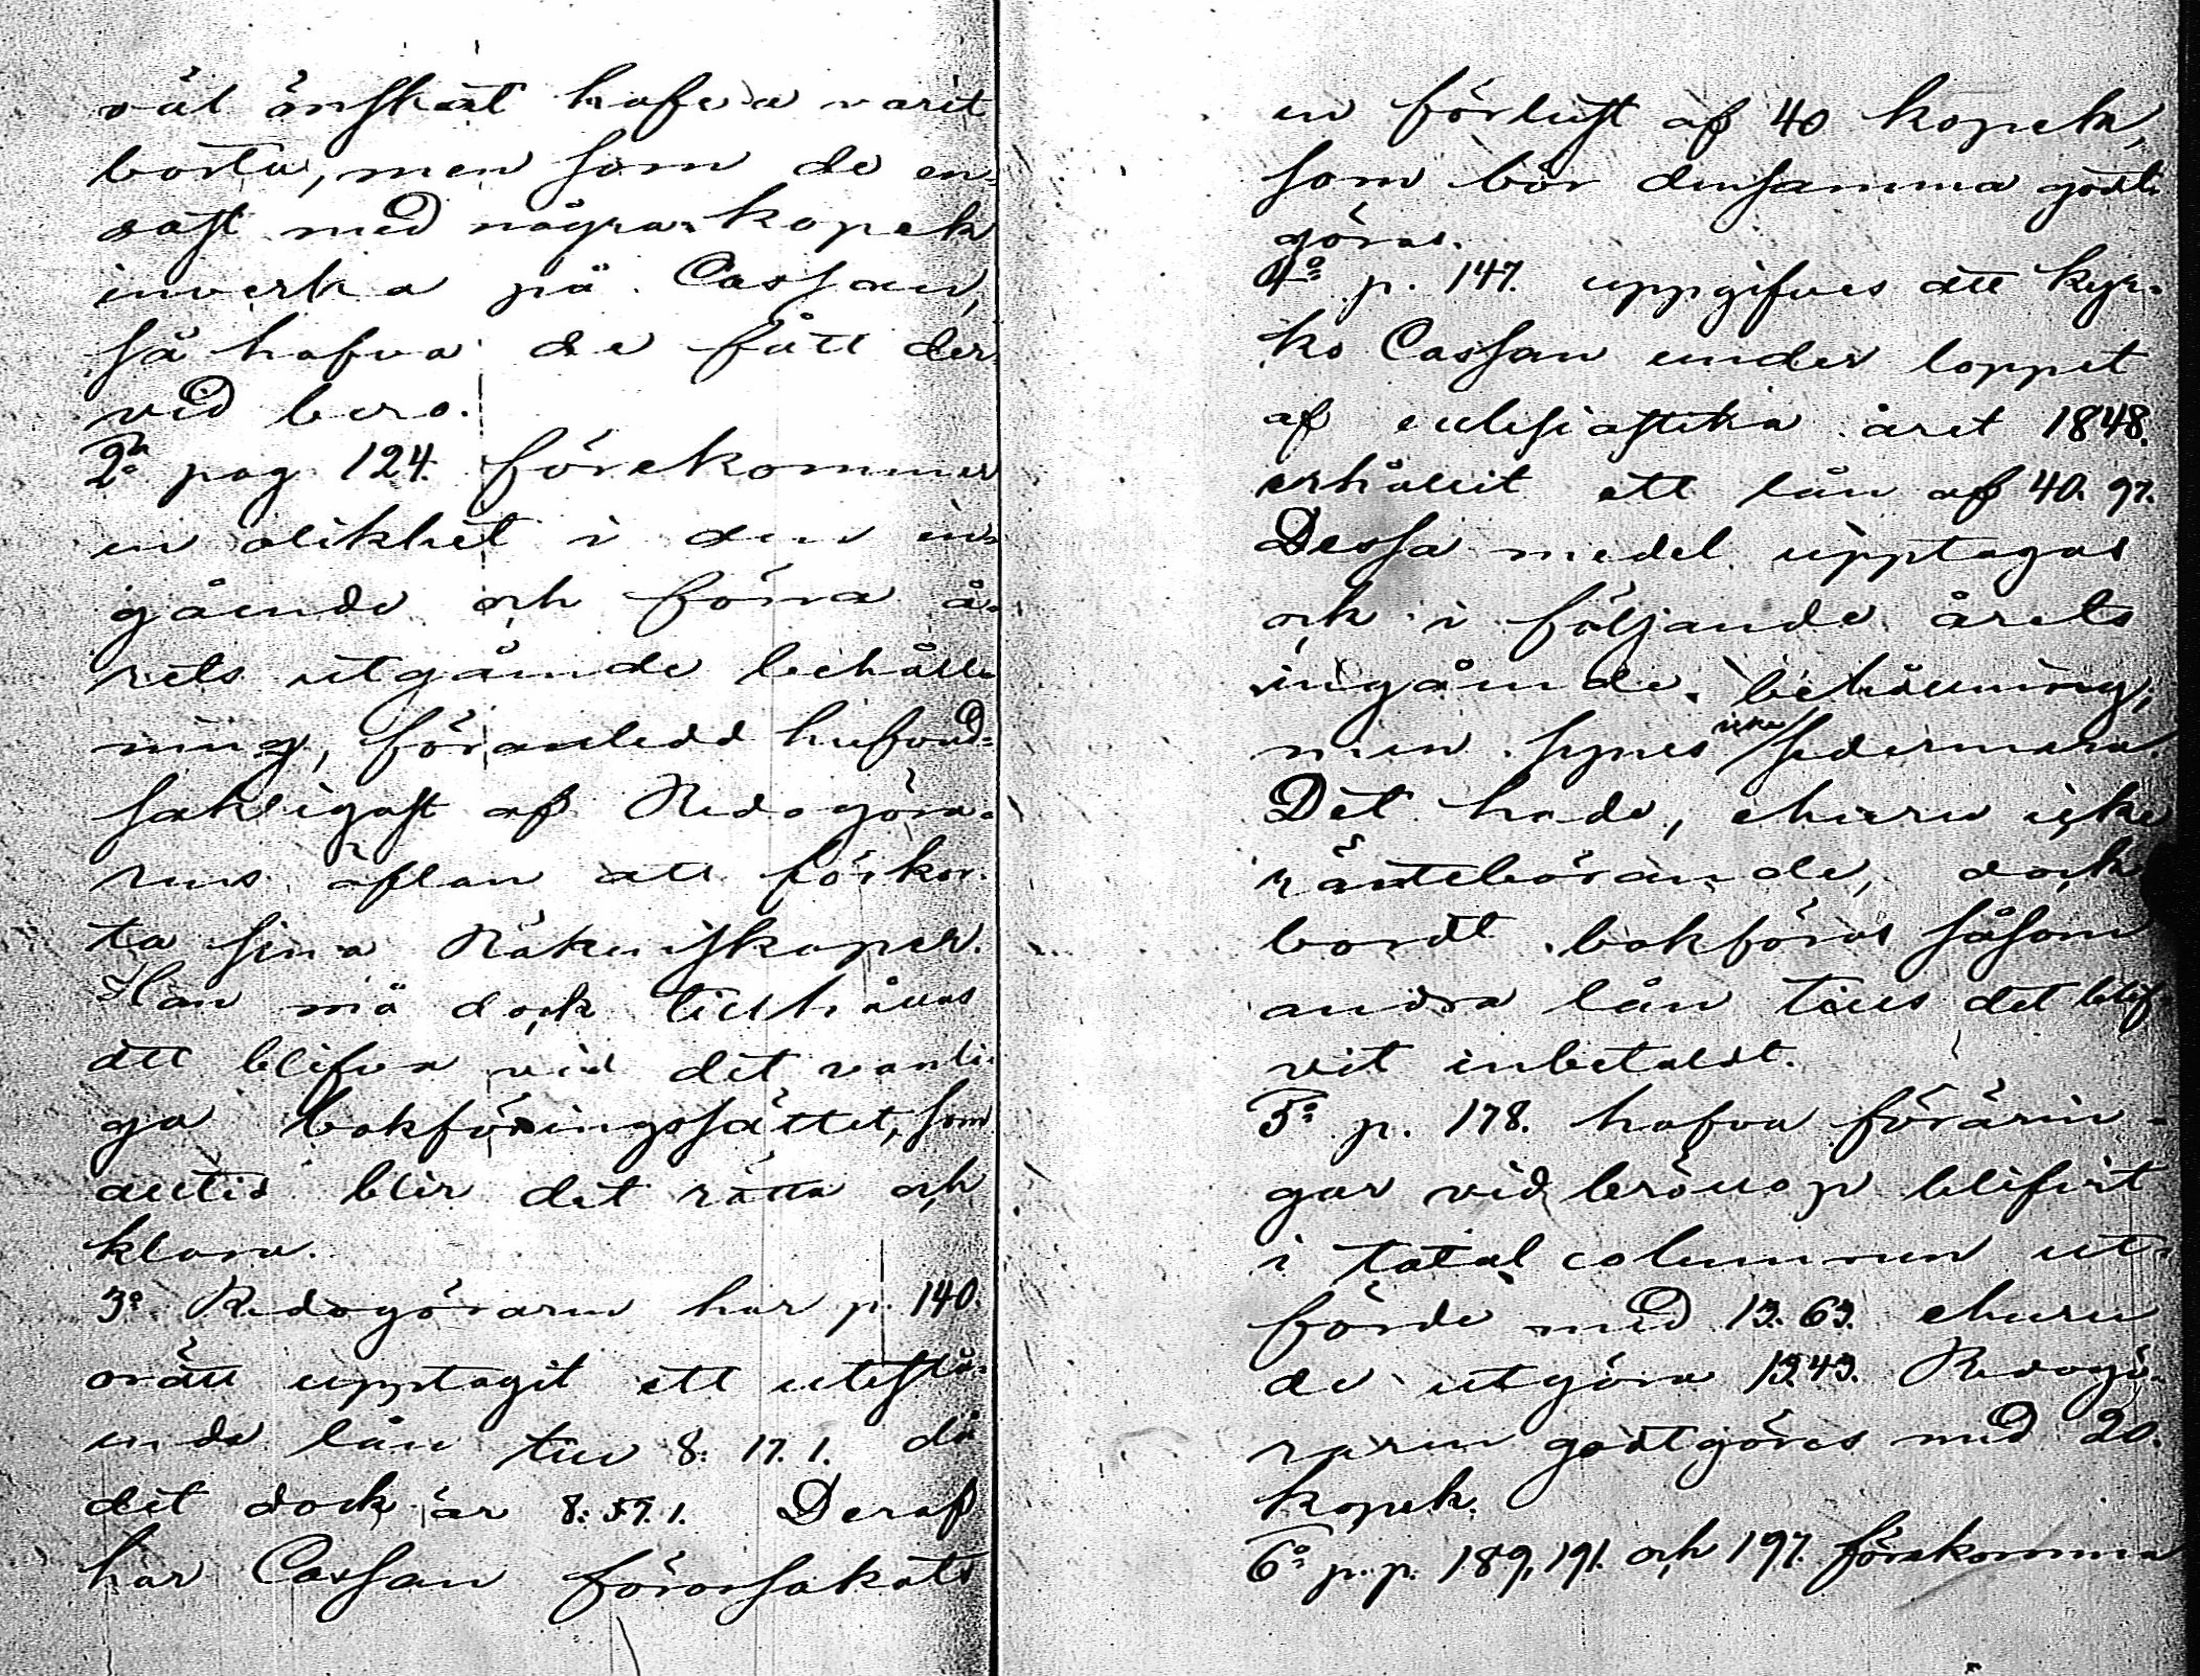 väl önskat hafva varit
borta, men som de en-
dast med några kopek
inverka på Cassan,
så hafva de fått der-
vid bero.
2o pag 124. förekommer
en olikhet i den in-
gående och förra å-
rets utgående behåll-
ning, föranledd hufvud-
sakligast af Redogöra-
rens äflan att förkor-
ta sina Räkenskaper.
Han må dock tillhållas
att blifva vid det vanli-
ga bokföringssättet, som
alltid blir det rätta och
klara.
3o Redogöraren har p. 140.
orätt upptagit ett utestå-
ende lån till 8: 17. 1. då
det dock är 8: 57. 1. Deraf
har Cassan förorsakats
en förlust af 40 kopek,
som bör densamma godt-
göras.
4o p. 147. uppgifves att kyr-
ko Cassan under loppet
af eclesiastika året 1848.
erhållit ett lån af 40. 97.
Dessa medel upptagas
ock i följande årets
ingående behållning,
men synes icke sedermera.
Det hade, ehuru icke
räntebärande, dock
bordt bokföras såsom
andra lån tills det blif-
vit inbetaldt.
5o p. 178. hafva förärin-
gar vid bröllop blifvit
i total columnen ut-
förde med 13. 63. ehuru
de utgöra 13.43. Redogö-
raren godtgöres med 20.
kopek.
6o p.p. 189, 191. och 197. förekomma